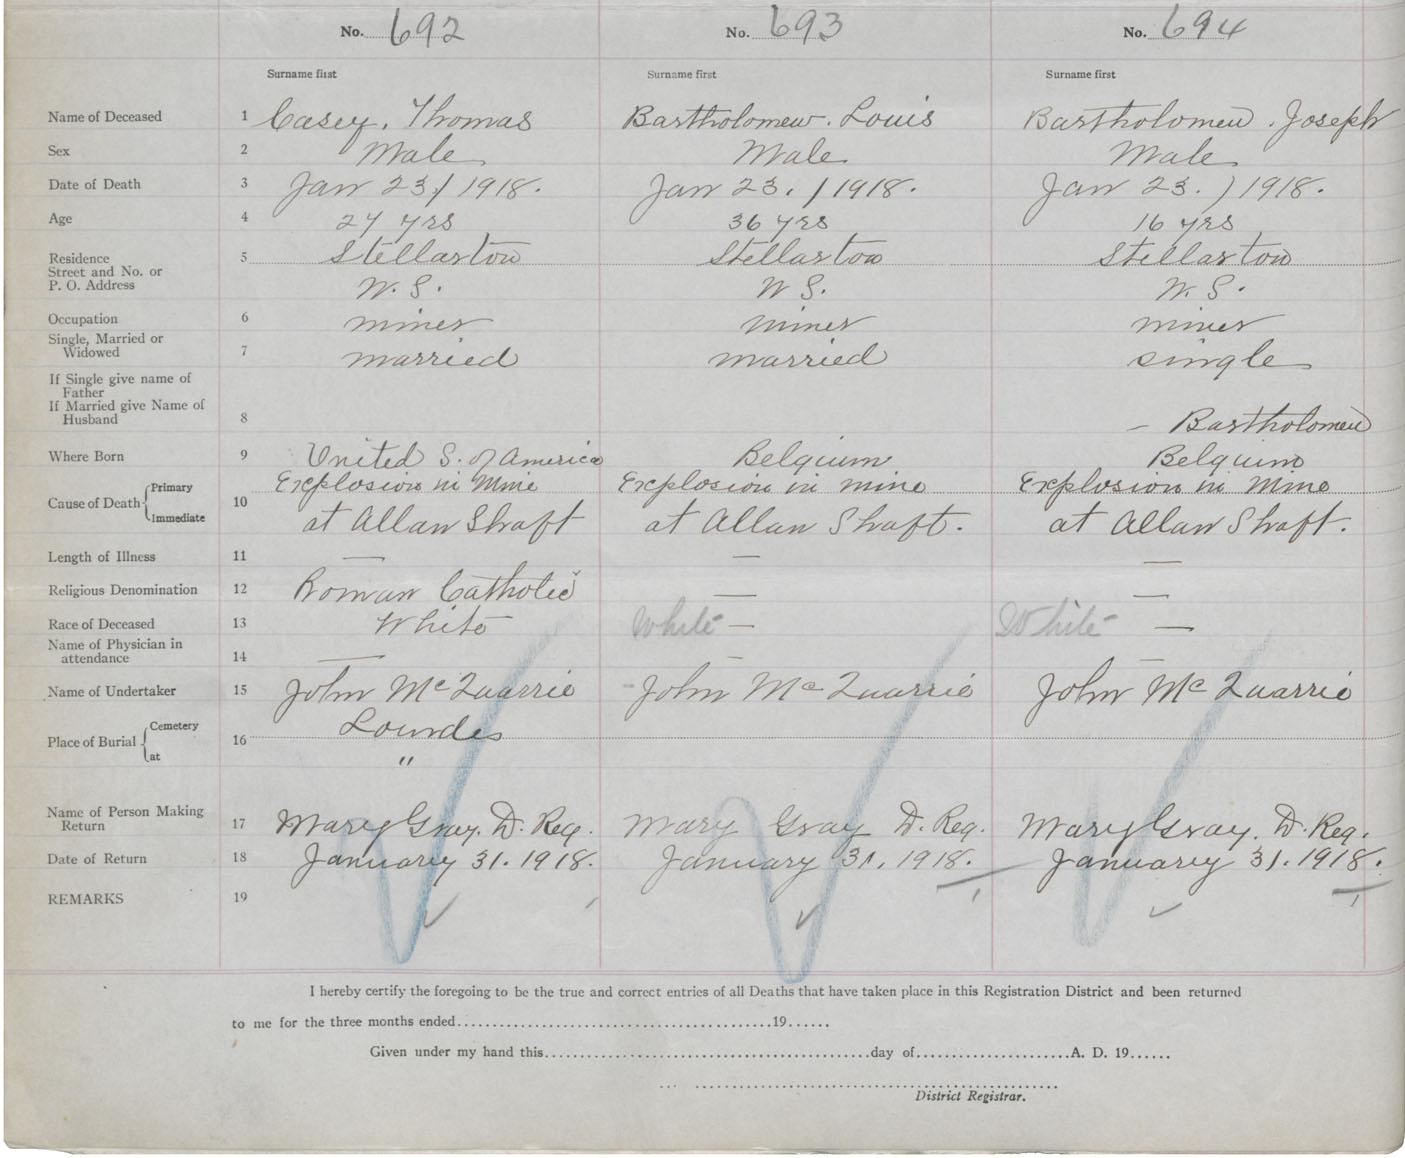 No. 692 No. 693 No. 694
Surname first Surname first Surname first
Name of Deceased 1 Casey, Thomas Bartholomew. Louis Bartholomew. Joseph
Sex 2 Male Male Male
Date of Death 3 Jan 23/1918. Jan 23./1918. Jan 23.)1918.
Age 4 27 yrs 36 yrs 16 yrs
Residence
Street and No. or
P. O. Address 5 Stellarton Stellarton Stellarton
N. S. N S. N. S.
Occupation 6 miner miner miner
Single, Married or
Widowed 7 married married single
If Single give name of
Father
If Married give Name of
Husband 8 – Bartholomew
Where Born 9 United S. of America Belgium Belgium
Cause of Death Primary
Immediate 10 Explosion in Mine Explosion in mine Explosion in Mine
at Allan Shaft at Allan Shaft. at Allan Shaft.
Length of Illness 11 — — —
Religious Denomination 12 Roman Catholic — —
Race of Deceased 13 White White — White —
Name of Physician in
attendance 14 — — —
Name of Undertaker 15 John McQuarrie John McQuarrie John McQuarrie
Place of Burial Cemetery
at 16 Lourdes
"
Name of Person Making
Return 17 Mary Gray. D. Reg. Mary Gray D. Reg. Mary Gray. D. Reg.
Date of Return 18 January 31. 1918. January 31, 1918. January 31. 1918.
REMARKS 19
I hereby certify the foregoing to be the true and correct entries of all Deaths that have taken place in this Registration District and been returned
to me for the three months ended..........19......
Given under my hand this..........day of..........A. D. 19......
District Registrar.